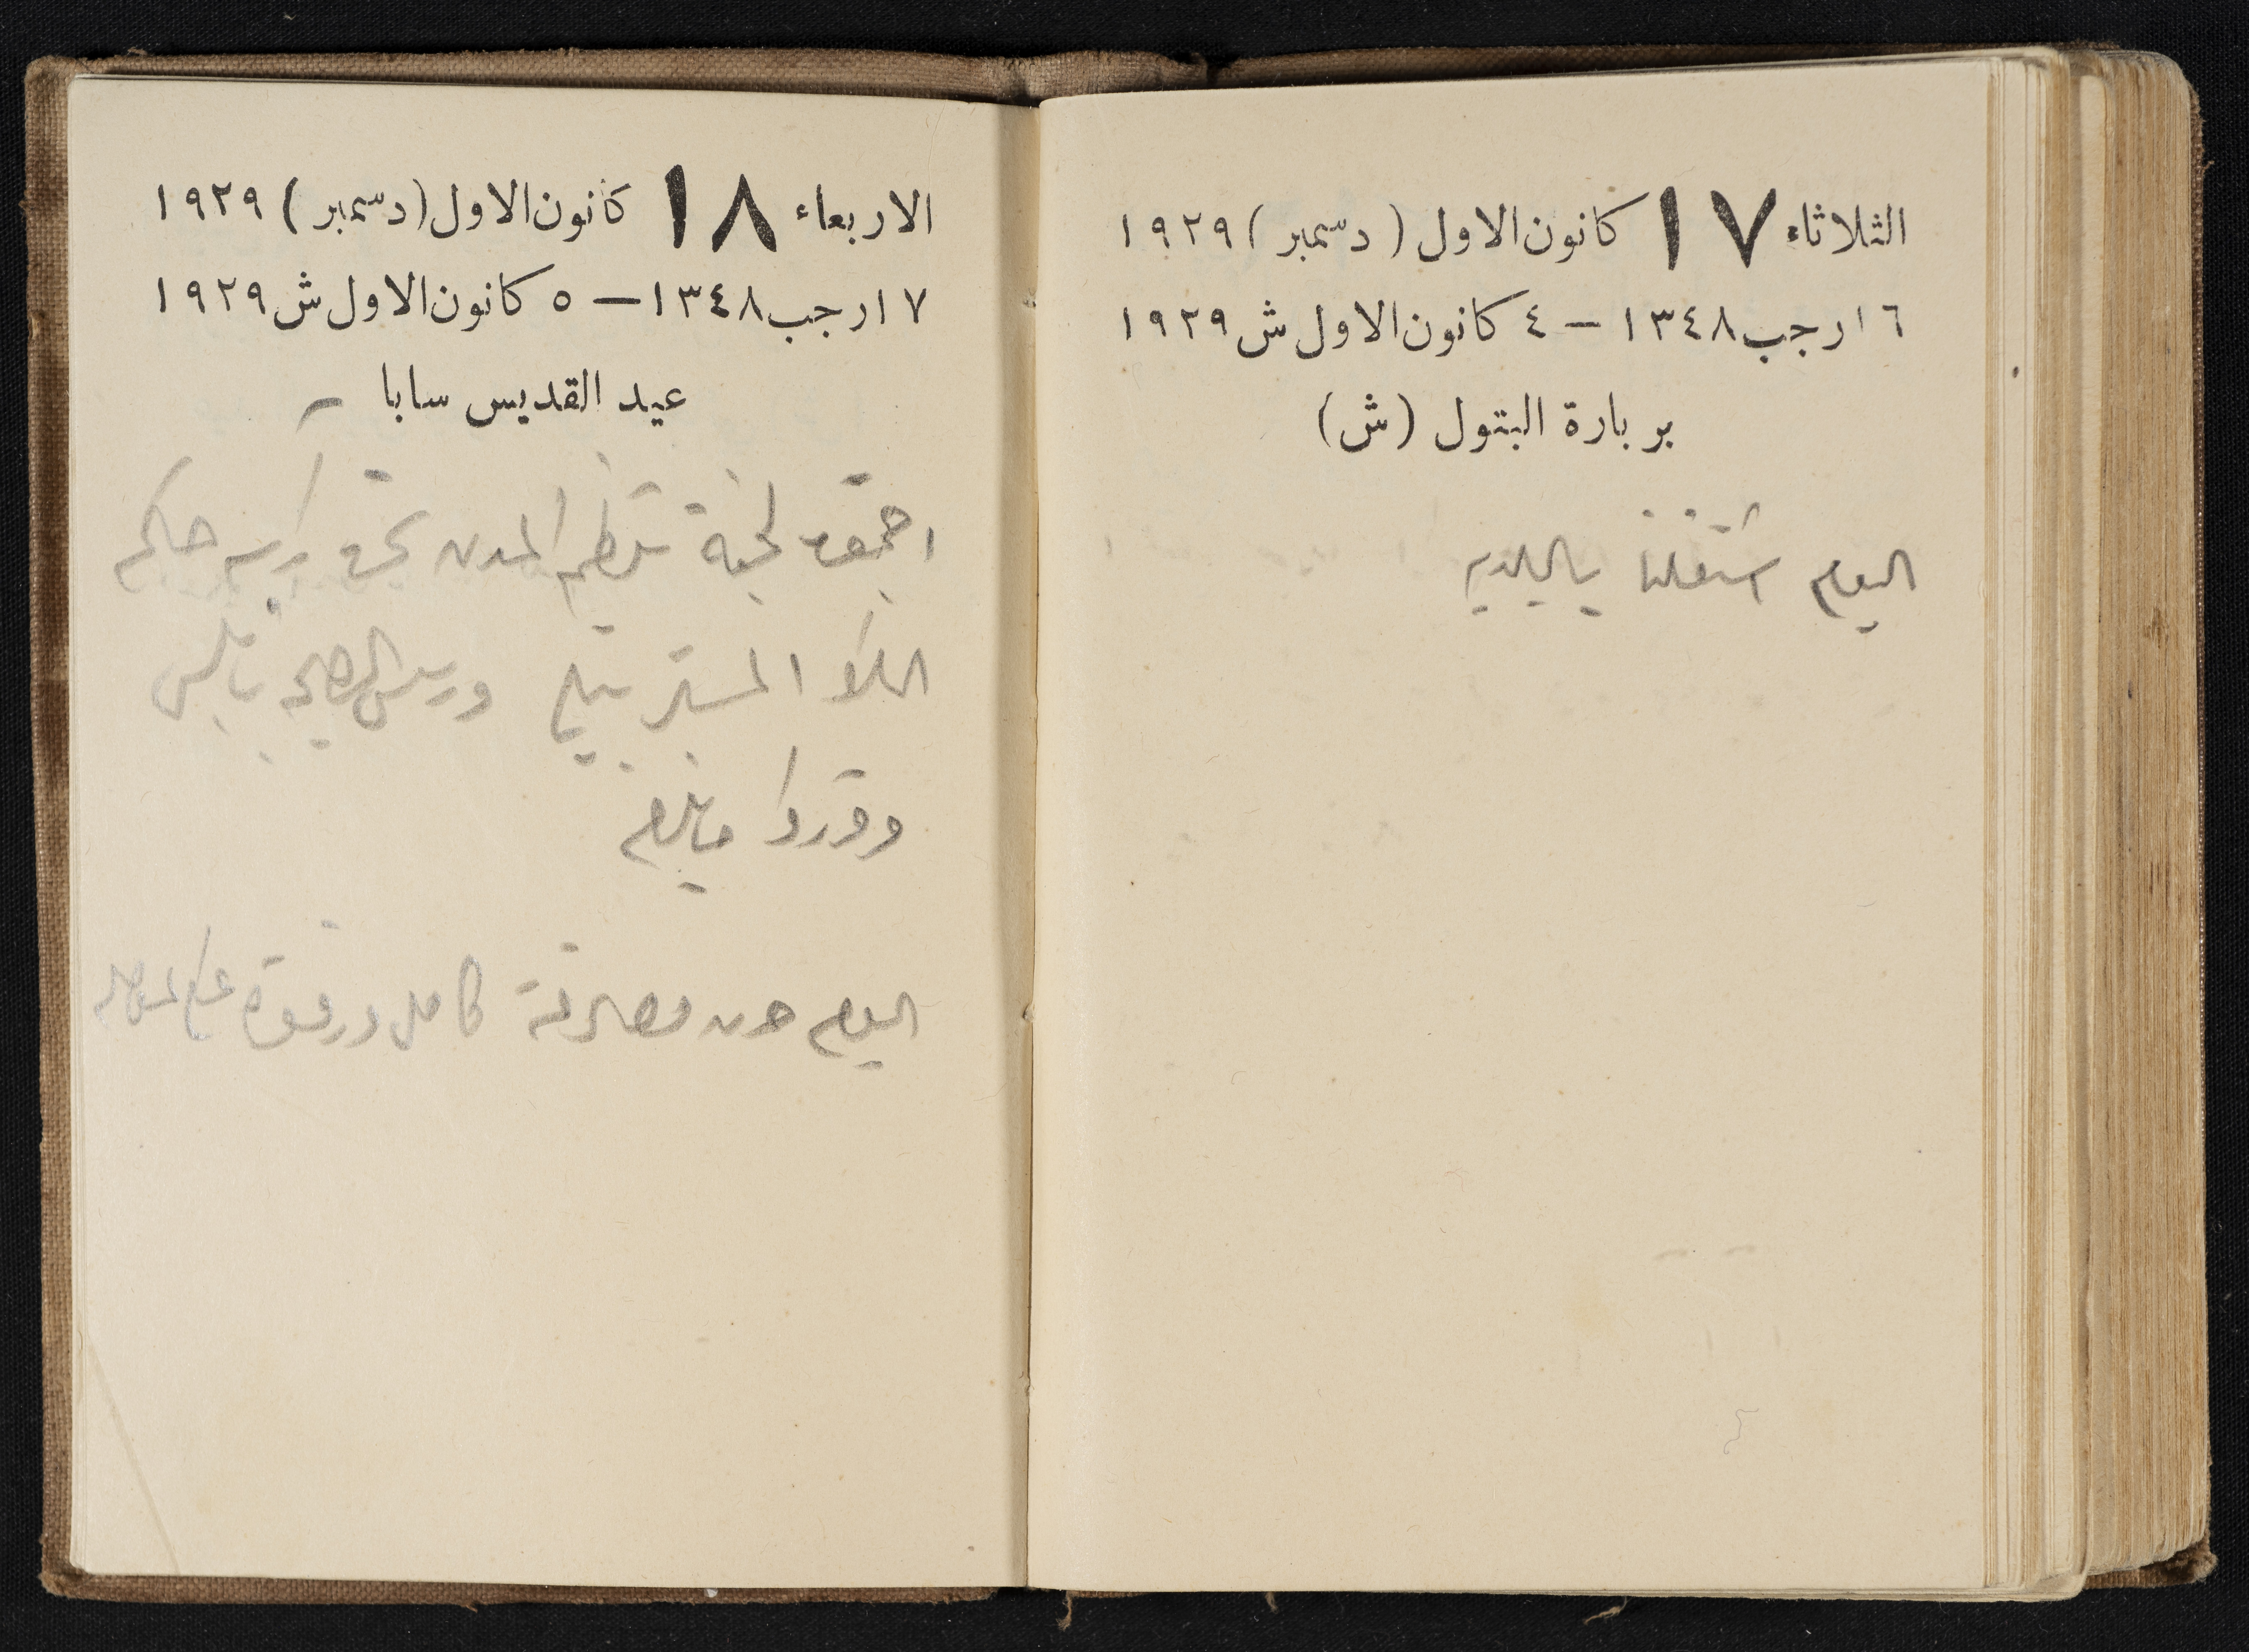 الثلاثاء ١٧ كانون الاول (دسمبر) ١٩٢٩
١٦ رجب ١٣٤٨ — ٤ كانون الاول ش ١٩٢٩
بربارة البتول (ش)
اليوم اشتغلنا بالبلديه
الاربعاء ١٨ كانون الاول (دسمبر) ١٩٢٩
١٧ رجب ١٣٤٨ — ٥ كانون الاول ش ١٩٢٩
عيد القديس سابا
اجتمعت لجنة تنظيم المدن تحت رآسة حاكم
اللوا المستر ورييس الصحه نابلس
وقرروا مايلزم
اليوم كامل